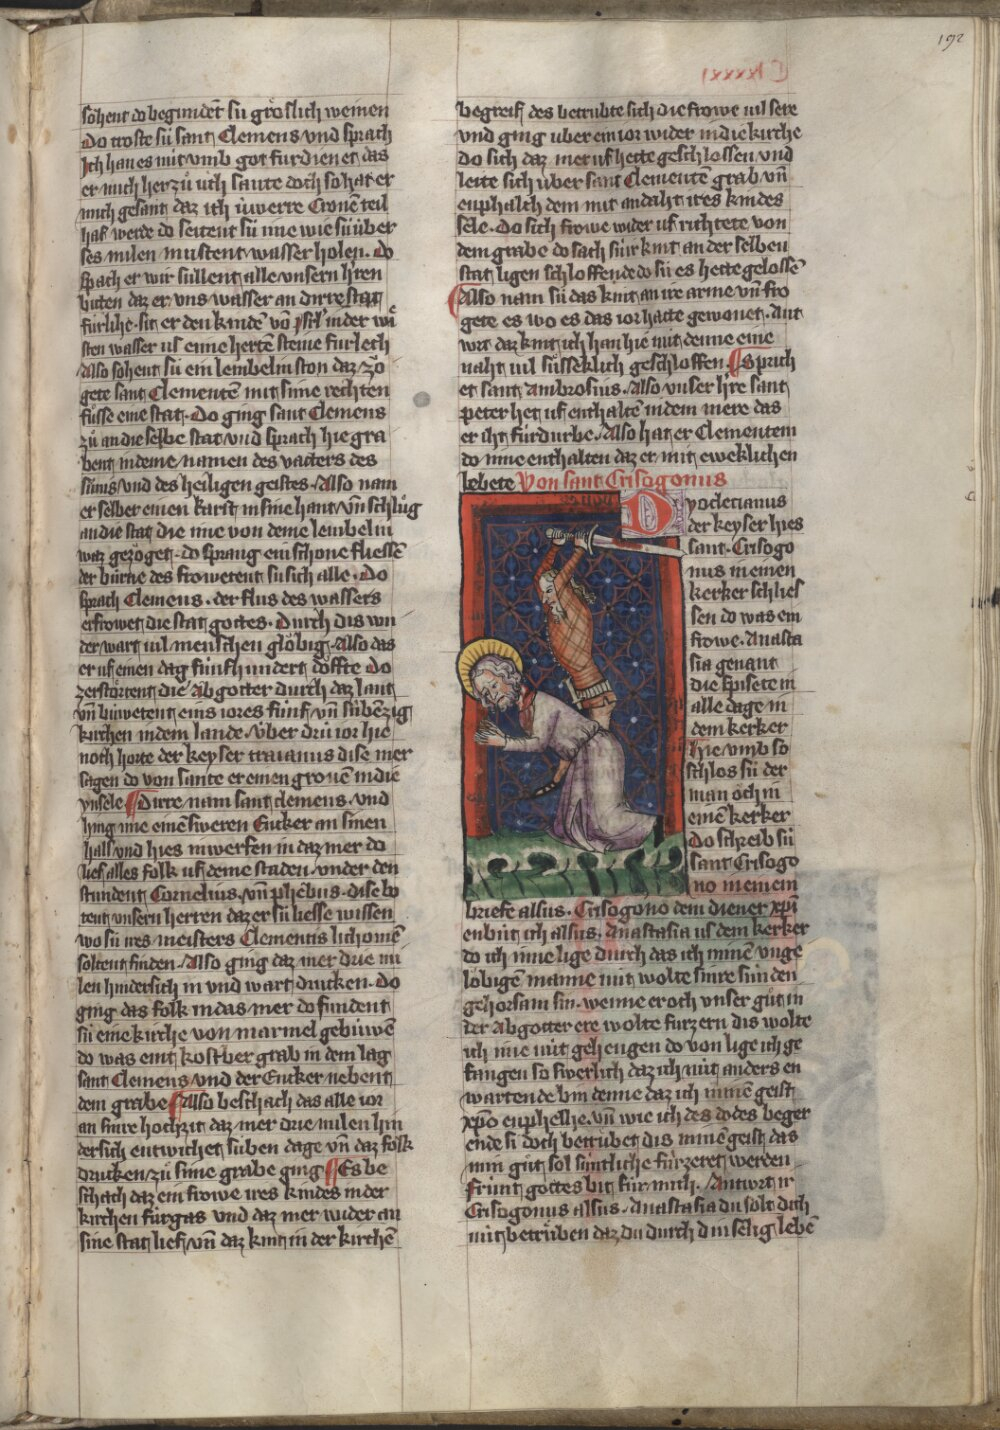 192
Clxxxxi
sohent do begundēt sü gröslich weinen
Do troste sü sant Clemens vnd sprach
Jch han es nüt vmb got fürdienet das
er mich her zů üch sante doch so hat er
mich gesant daz ich üwerre Cronē teil
haft werde do seitent sü ime wie sü über
ses milen mustent wasser holen. do
sprach er wir süllent alle vnsern hʼren
bitten daz er vns wasser an dirre stat
fürlihe. sit er den kindē vō ysrl' in der wů
sten wasser us eime hertē steine fürlech
Also sohent sü ein lembelin ston daz zö
gete sant Clementē mit sime rechten
füsse eine stat. Do ging sant Clemens
zů an die selbe stat vnd sprach hie gra
bent in deme namen des vatters des
suns vnd des heiligen geistes. Also nam
er selber einen karst in sine hant vn̄ schlůg
an die stat die ime von deme lembelin
waz gezöget. do sprang ein schöne fliessē
der burne des frowetent sü sich alle. Do
sprach Clemens. der flus des wassers
erfrowet die stat gottes. Durch dis wun
der wart vil menschen glöbig. Also das
er uf einen dag fünfhundert döffte do
zerstörtent die abgötter durch daz lant
vn̄ buwetent eins iores fünf vn̄ sübenzig
kirchen in dem lande. über drü ior hie
noch horte der keyser traianus dise mer
sagen do von sante er einen grouē in die
ynsele Dirre nam sant clemens. vnd
hing ime einē sweren Encker an sinen
hals vnd hies in werfen in daz mer do
lief alles folk uf deme staden vnder den
stundent Cornelius. vn̄ phebus. dise bo
tent vnsern herren daz er sü liesse wissen
wo sü ires meisters Clementis lichomē
soltent finden. Also ging daz mer drie mi
len hindersich in vnd wart drucken. Do
ging das folk in das mer do fundent
sü eine kirche von marmel gebuwē
do was eint kostber grab in dem lag
sant Clemens vnd der Encker nebent
dem grabe Also beschach das alle ior
an sinre hochzit daz mer drie milen hin
dersich entwichet süben dage vn̄ daz folk
drucken zů sime grabe ging Es be
schach daz ein frowe ires kindes in der
kirchen fürgas vnd daz mer wider an
sine stat lief vn̄ daz kint in der kirchē
begreif des betrubte sich die frowe vil sere
vnd ging über ein ior wider in die kirche
do sich daz mer uf hette geschlossen vnd
leite sich über sant Clementē grab vn̄
enphalch dem mit andaht ires kindes
sele. do sich frowe wider uf richtete von
dem grabe do sach sü ir kint an der selben
stat ligen schloffende do sü es hette gelossē
Also nam sü das kint an ire arme vn̄ fro
gete es wo es das ior hatte gewonet. Ant
wrt daz kint ich han hie nüt denne eine
naht vil süsseklich geschloffen. Sprich
et sant Ambrosius. Also vnser hʼre sant
peter het uf enthaltē in dem mere das
er iht fürdurbe. Also hat er Clementem
do inne enthalten daz er mit eweklichen
lebete Von sant Crisogonus
Dyocletianus
der keyser hies
sant. Crisogo
nus in einen
kerker schlies
sen do was ein
frowe. Anasta
sia genant
die spisete in
alle dage in
dem kerker
hie vmb so
schlos sü der
man och in
einē kerker
Do schreib sü
sant Crisogo
no in eineīn
briefe alsus. Crisogono dem diener xp̄i
enbüt ich alsus. Anastasia us dem kerker
do ich inne lige durch das ich minē vnge
löbigen manne nüt wolte sinre sünden
gehorsam sin. wenne er och vnser gůt in
der abgötter ere wolte furzern dis wolte
ich ime nüt gehengen do von lige ich ge
fangen so swerlich daz ich nüt anders en
wartende bin denne daz ich minē geist
xp̄o enphelhe. vn̄ wie ich des dodes beger
ende si doch betrubet dis minē geist das
min gůt sol süntliche fürzeret werden
frünt gottes bit für mich. Antwort ir
Crisogonus alsus. Anastasia du solt dich
nüt betrüben daz du durch din selig lebē